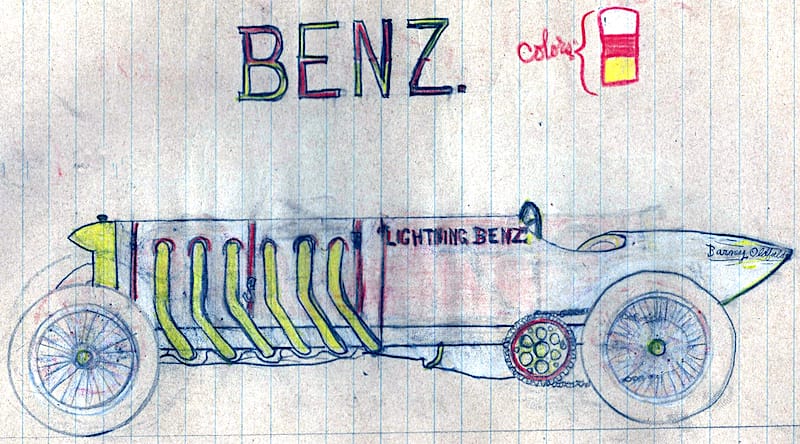 BENZ.
colors:
"LIGHTNING BENZ"
Barney Oldfield